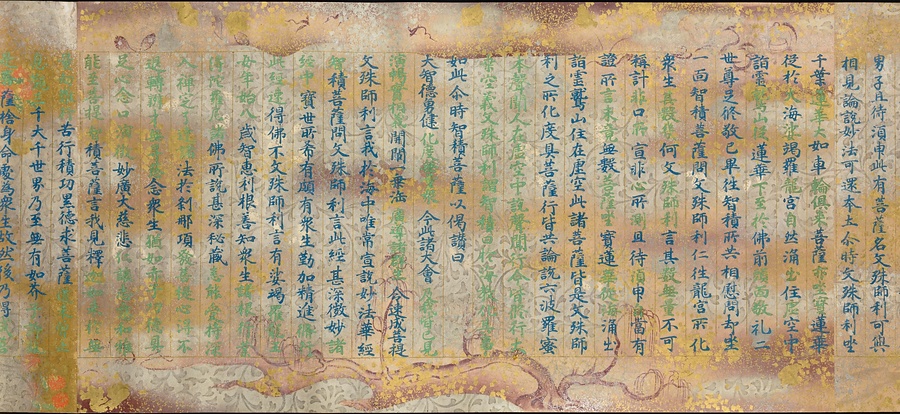 男子且待須臾此有菩薩名文殊師利可與
相見論說妙法可還本土尒時文殊師利坐
千葉蓮華大如車輪俱來菩薩亦坐寶蓮華
從於大海娑竭羅龍宮自然涌出住虛空中
詣靈鷲山從蓮華下至於佛前頭面敬礼二
世尊足修敬已畢往智積所共相慰問却坐
一面智積菩薩問文殊師利仁往龍宮所化
衆生其數幾何文殊師利言其數無量不可
稱計非口所宣非心所測且待須臾自當有
證所言未竟無數菩薩坐寶蓮華從海涌出
詣靈鷲山住在虛空此諸菩薩皆是文殊師
利之所化度具菩薩行皆共論說六波羅蜜
本聲聞人在虛空中說聲聞行今皆修行大
乘空義文殊師利謂智積曰於海教化其事
如此尒時智積菩薩以偈讚曰
大智德勇健 化度無量衆 今此諸大會 及我皆已見
演暢實相義 開闡一乘法 廣導諸衆生 令速成菩提
文殊師利言我於海中唯常宣說妙法華經
智積菩薩問文殊師利言此經甚深微妙諸
經中寶世所希有頗有衆生勤加精進修行
此經速得佛不文殊師利言有娑竭羅龍王
女年始八歲智惠利根善知衆生諸根行業
得陀羅尼諸佛所說甚深秘藏悉能受持
入禪定了達諸法於刹那頃發菩提心得不
退轉辯才無礙慈念衆生猶如赤子功德具
足心念口演微妙廣大慈悲仁讓
能至菩提智積菩薩言我見釋迦如來於無
苦行積功累德求菩薩道
千大千世界乃至無有如芥
薩捨身命處為衆生故然後乃得